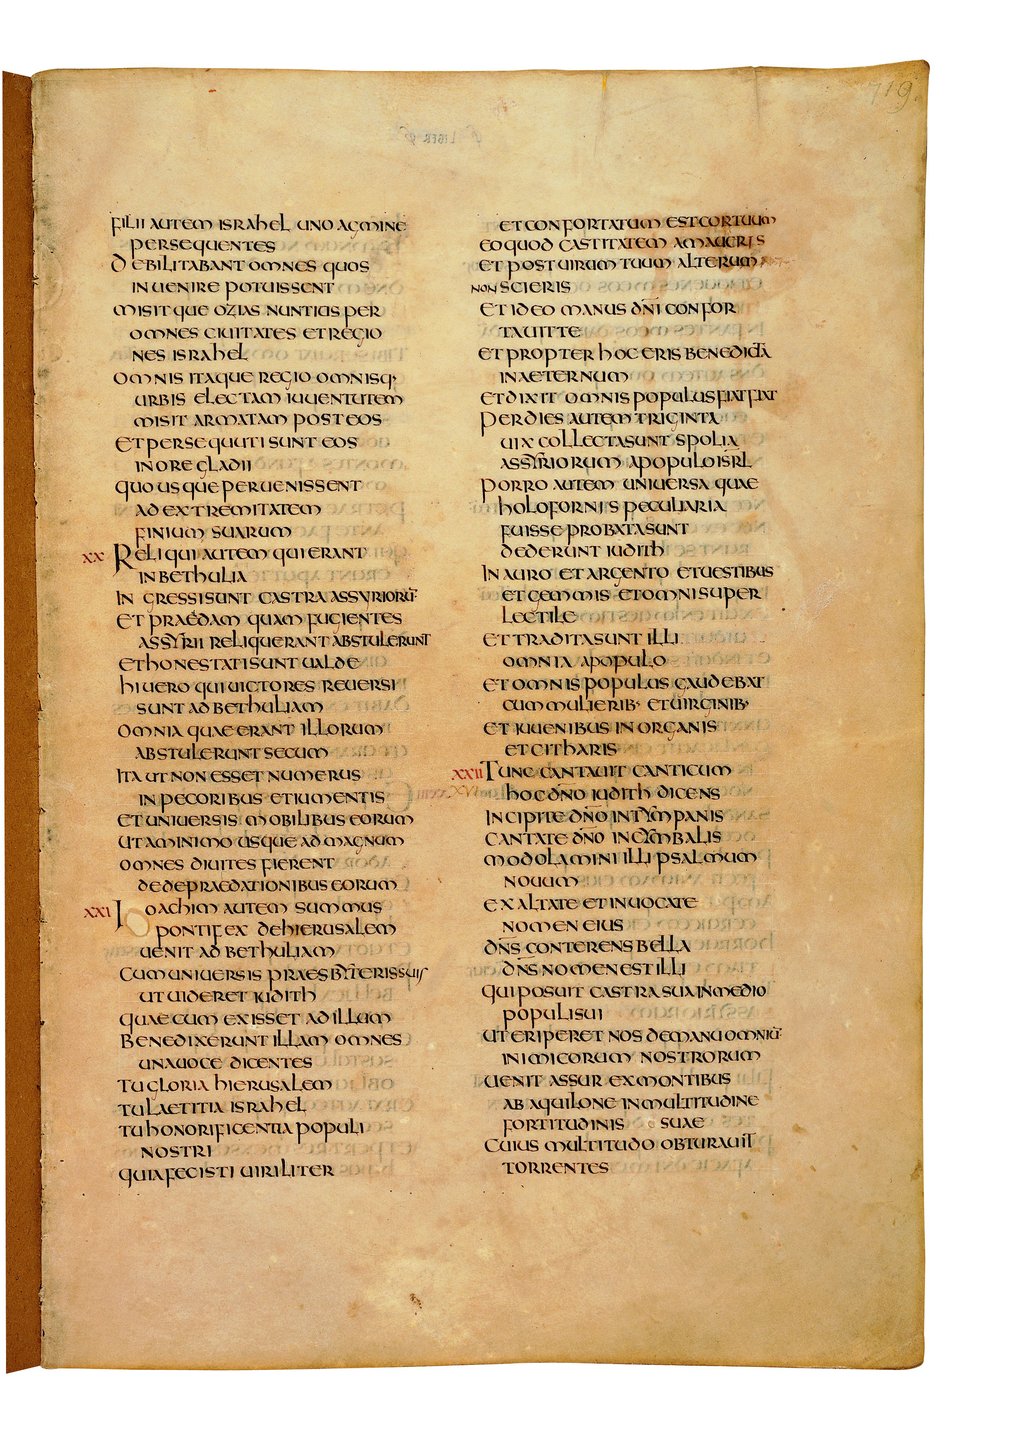 719.
FILII AUTEM ISRAHEL UNO AGMINE
PERSEQUENTES
DEBILITABANT OMNES QUOS
INUENIRE POTUISSENT
MISITQUE OZIAS NUNTIOS PER
OMNES CIUITATES ET REGIO
NES ISRAHEL
OMNIS ITAQUE REGIO OMNISQ·
URBIS ELECTAM IUUENTUTEM
MISIT ARMATAM POST EOS
ET PERSEQUUTI SUNT EOS
IN ORE GLADII
QUO USQUE PERUENISSENT
AD EXTREMITATEM
FINIUM SUARUM
XX RELIQUI AUTEM QUI ERANT
IN BETHULIA
INGRESSI SUNT CASTRA ASSYRIORŪ·
ET PRAEDAM QUAM FUGIENTES
ASSYRII RELIQUERANT ABSTULERUNT
ET HONESTATI SUNT UALDE
HI UERO QUI UICTORES REUERSI
SUNT AD BETHULIAM
OMNIA QUAE ERANT ILLORUM
ABSTULERUNT SECUM
ITA UT NON ESSET NUMERUS
IN PECORIBUS ET IUMENTIS
ET UNIUERSIS MOBILIBUS EORUM
UT A MINIMO USQUE AD MAGNUM
OMNES DIUITES FIERENT
DE DEPRAEDATIONIBUS EORUM
XXI IOACHIM AUTEM SUMMUS
PONTIFEX DE HIERUSALEM
UENIT AD BETHULIAM
CUM UNIUERSIS PRAESBYTERIS SUIS
UT UIDERET IUDITH
QUAE CUM EXISSET AD ILLUM
BENEDIXERUNT ILLAM OMNES
UNA UOCE DICENTES
TU GLORIA HIERUSALEM
TU LAETITIA ISRAHEL
TU HONORIFICENTIA POPULI
NOSTRI
QUIA FECISTI UIRILITER
ET CONFORTATUM EST COR TUUM
EO QUOD CASTITATEM AMAUERIS
ET POST UIRUM TUUM ALTERUM
NON SCIERIS
ET IDEO MANUS DN̄I CONFOR
TAUIT TE
ET PROPTER HOC ERIS BENEDICTA
IN AETERNUM
ET DIXIT OMNIS POPULUS FIAT FIAT
PER DIES AUTEM TRIGINTA
UIX COLLECTA SUNT SPOLIA
ASSYRIORUM A POPULO ISRL̄
PORRO AUTEM UNIUERSA QUAE
HOLOFORNIS PECULIARIA
FUISSE PROBATA SUNT
DEDERUNT IUDITH
IN AURO ET ARGENTO ET UESTIBUS
ET GEMMIS ET OMNI SUPER
LECTILE
ET TRADITA SUNT ILLI
OMNIA A POPULO
ET OMNIS POPULUS GAUDEBAT
CUM MULIERIB· ET UIRGINIB·
ET IUUENIBUS IN ORGANIS
ET CITHARIS
XXII TUNC CANTAUIT CANTICUM
HOC DN̄O IUDITH DICENS
INCIPITE DN̄O IN TYMPANIS
CANTATE DN̄O IN CYMBALIS
MODOLAMINI ILLI PSALMUM
NOUUM
EXALTATE ET INUOCATE
NOMEN EIUS
DN̄S CONTERENS BELLA
DN̄S NOMEN EST ILLI
QUI POSUIT CASTRA SUA IN MEDIO
POPULI SUI
UT ERIPERET NOS DE MANU OMNIŪ·
INIMICORUM NOSTRORUM
UENIT ASSUR EX MONTIBUS
AB AQUILONE IN MULTITUDINE
FORTITUDINIS SUAE
CUIUS MULTITUDO OBTURAUIT
TORRENTES